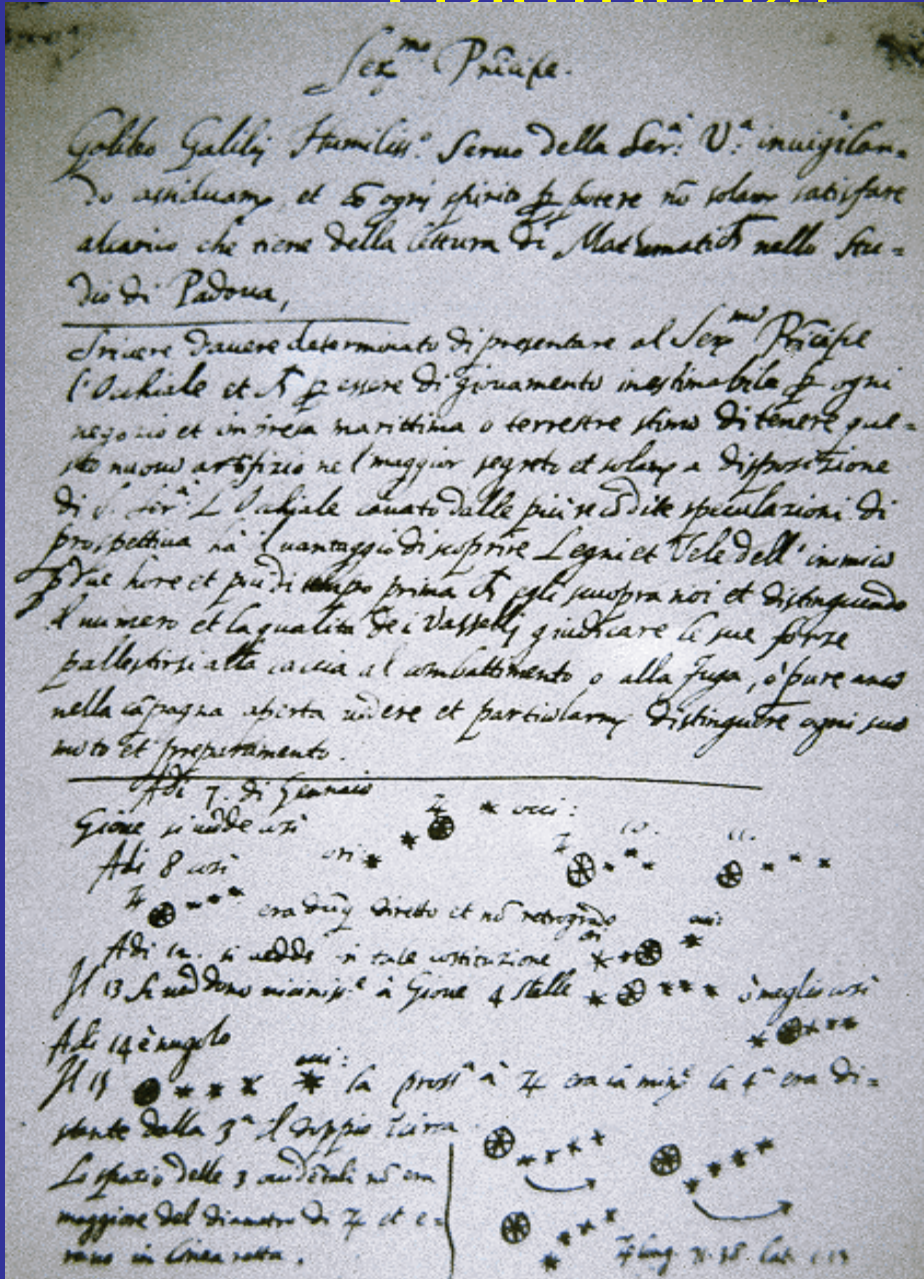 Ser.mo Prĩcipe.
Galileo Galilej Humiliss.o Seruo della Ser.a V.a inuigilan=
do assiduam.e et cõ ogni spirito p potere nõ solam.e satisfare
alcarico che tiene della lettura di Mathematich nello Stu=
dio di Padoua,
Scriuere dauere determinato di presentare al Ser.mo Prĩcipe
l'Occhiale et p essere di giouamento inestimabile p ogni
negozio et impresa marittima o terrestre stimo di tenere que=
sto nuouo artifizio ne l maggior segreto et solam.e a disposizione
di S. Ser.a L'Occhiale cauato dalle più recõdite speculazioni di
prospettiua hà l uantaggio di scoprire Legni et Vele dell' inimico
p due hore et più di tempo prima ch egli scuopra noi et distinguendo
il numero et la qualità de i Vasselli giudicare le sue forze
pallestirsi alla caccia al combattimento o alla fuga, ò pure anco
nella cãpagna aperta uedere et particolarm.e distinguere ogni suo
moto et preparamento.
Adi 7. di Gennaio
Gione si uede cosi ♃ occi:
Adi 8 cosi ori. ♃ 10. 11.
♃ era dũq diretto et nõ retrogrado
Adi 12. si uedde in tale costituzione ori occi:
Il 13 si ueddono uiciniss.e à Gioue 4 stelle ò meglio cosi
Adi 14 è nugolo
Il 15 occi: la pross.a à ♃ era la min.e la 4.a era di=
stante dalla 3.a il doppio Circa
Lo spazio delle 3 occidetali nõ era
maggiore del diametro di ♃ et e=
rano in linea retta.
♃ long. 71. 38 Lat. 1.13